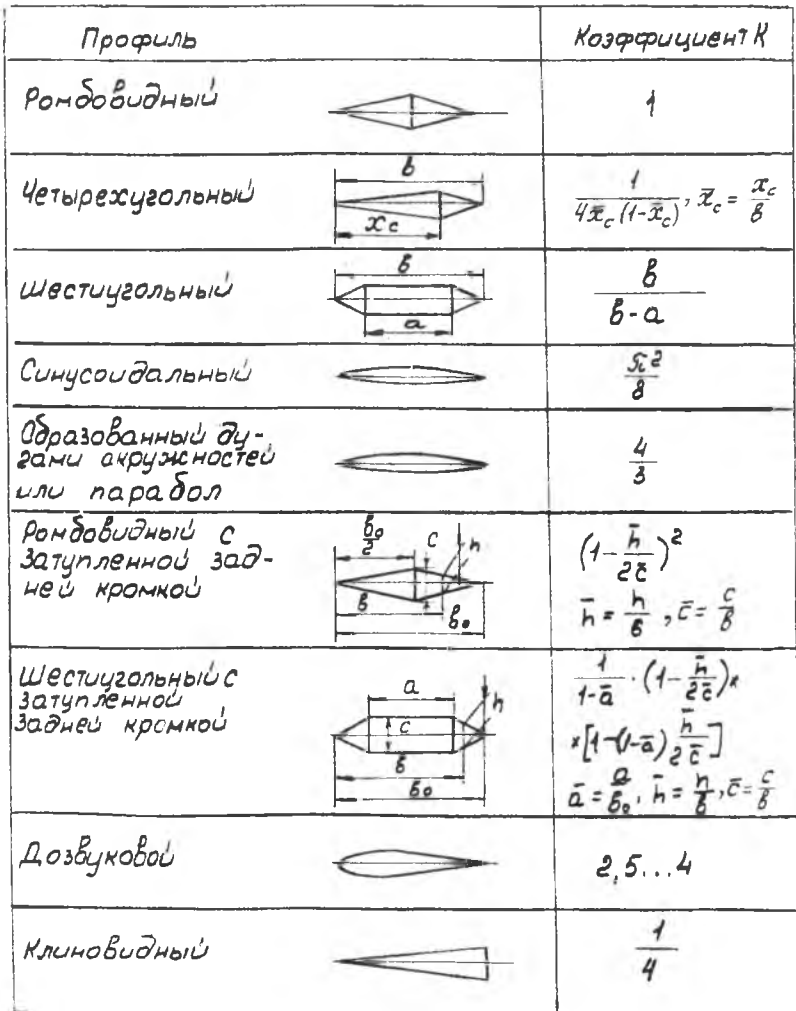 Профиль Коэффициент К
Ромбовидный 1
Четырехугольный b xc 1/(4x̄c(1-x̄c)), x̄c = xc/b
Шестиугольный b a b/(b-a)
Синусоидальный π²/8
Образованный ду-
гами окружностей
или парабол 4/3
Ромбовидный с
затупленной зад-
ней кромкой b₀/2 c h b b₀ (1-h̄/2c̄)²
h̄ = h/b, c̄ = c/b
Шестиугольный с
затупленной
задней кромкой a h c b b₀ 1/(1-ā)·(1-h̄/2c̄)×
×[1-(1-ā)h̄/2c̄]
ā = a/b₀, h̄ = h/b, c̄ = c/b
Дозвуковой 2,5...4
Клиновидный 1/4